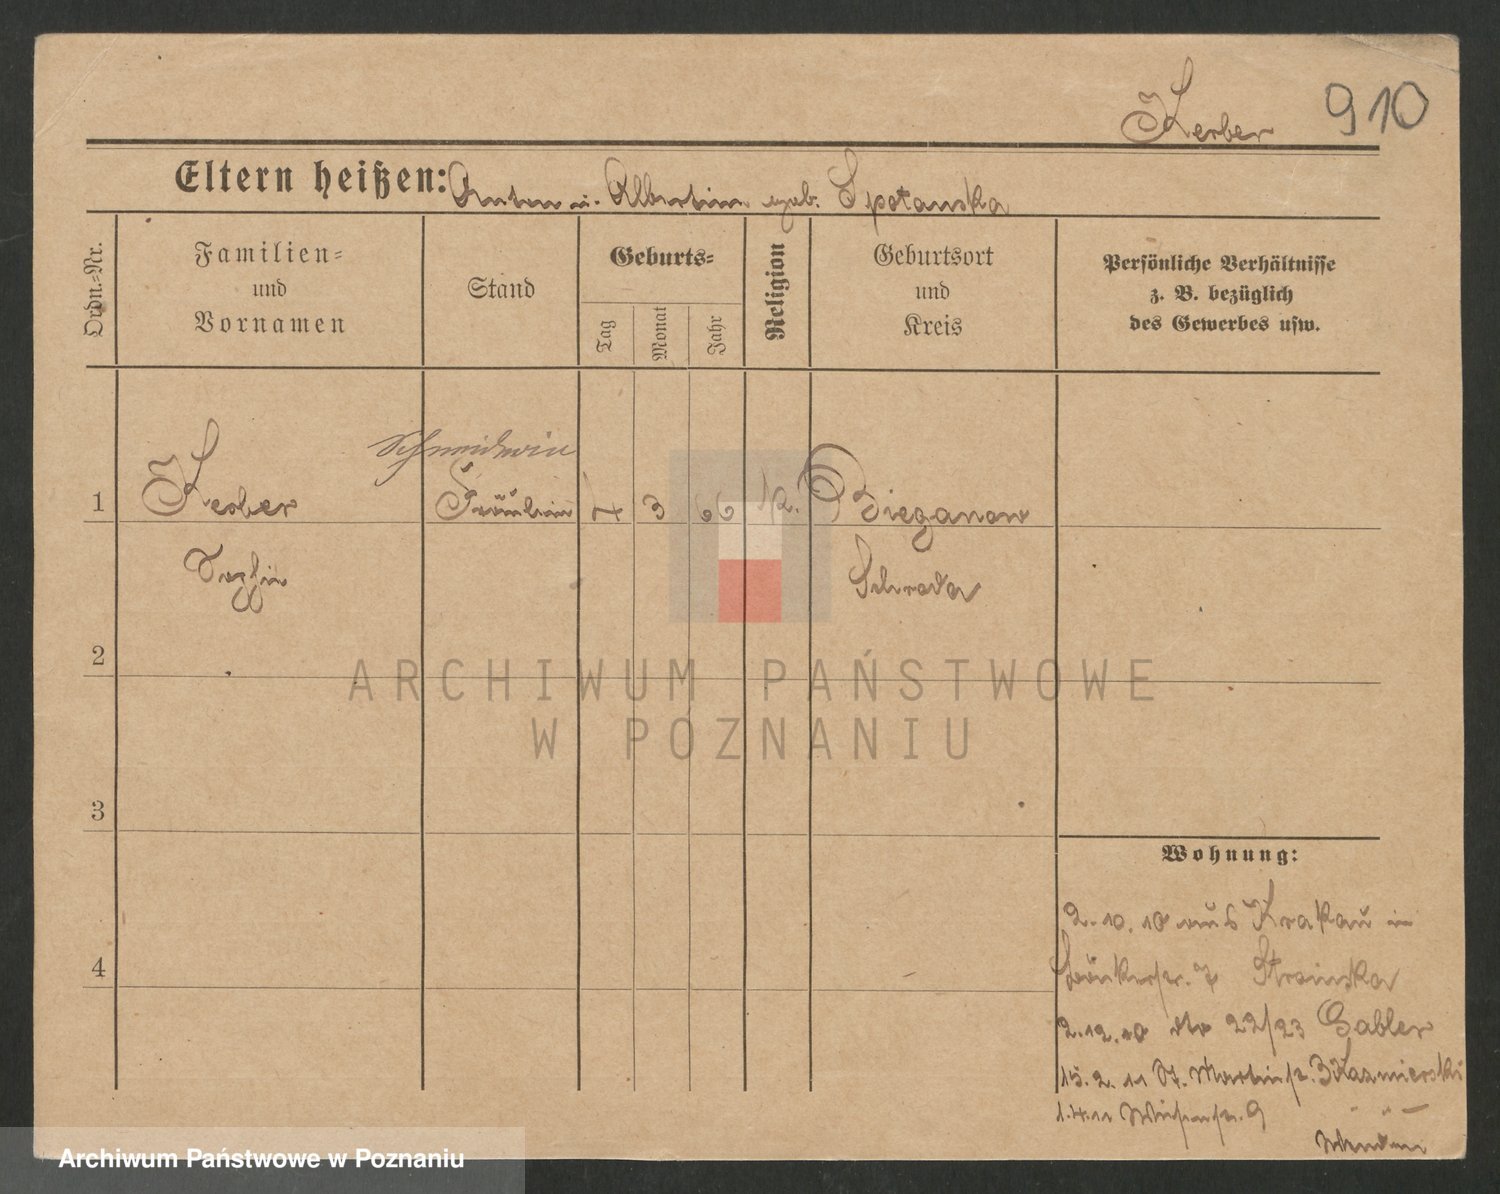 Kerber 910
Eltern heißen: Anton u. Albertine geb. Spotanska
Ordn.-Nr.
Familien-
und
Vornamen
Stand
Geburts-
Tag
Monat
Jahr
Religion
Geburtsort
und
Kreis
Persönliche Verhältnisse
z. B. bezüglich
des Gewerbes usw.
Schneiderin
1 Kerber Fräulein 4 3 66 k. Bieganowo
Sophie Schroda
2
ARCHIWUM PAŃSTWOWE
W POZNANIU
3
Wohnung:
2.10.10 aus Krakau in
4
7 Stroinska
2.12.10 dto 22/23 Gabler
15.2.11 St. Martinstr. 3 Kazmierski
1.4.11 Wiesenstr. 9 " " —
Archiwum Państwowe w Poznaniu